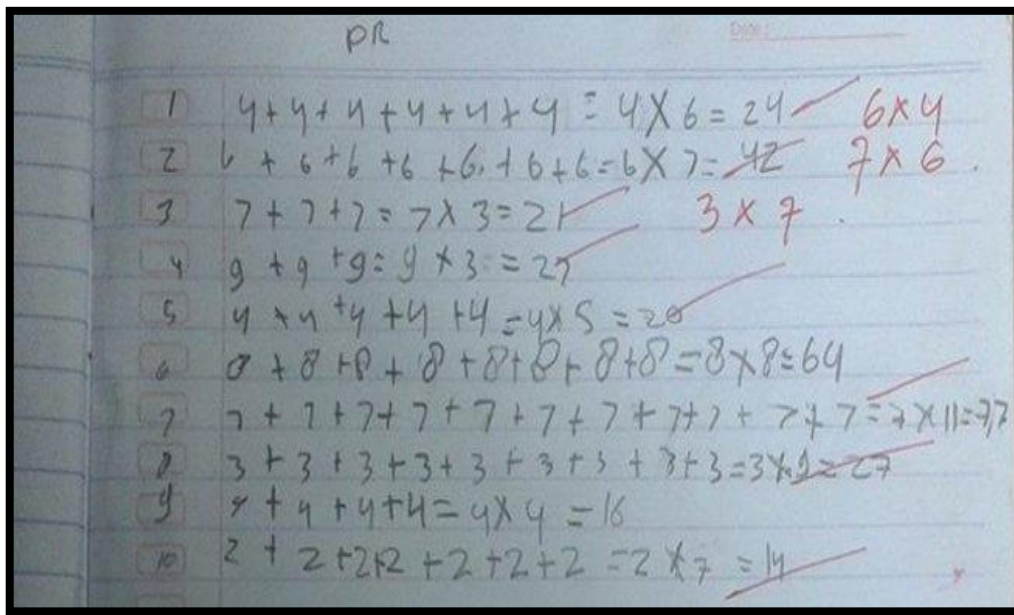 PR
Date:
1 4+4+4+4+4+4 = 4X6 = 24 6x4
2 6+6+6+6+6+6+6=6X7=42 7x6.
3 7+7+7=7x3=21 3x7.
4 9+9+9=9x3=27
5 4+4+4+4+4=4x5=20
6 8+8+8+8+8+8+8+8=8x8=64
7 7+7+7+7+7+7+7+7+7+7+7=7X11=77
8 3+3+3+3+3+3+3+3+3=3x9=27
9 4+4+4+4=4x4=16
10 2+2+2+2+2+2+2=2x7=14